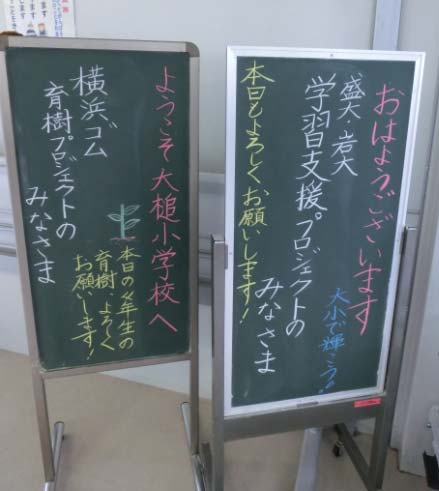 ようこそ大槌小学校へ
横浜ゴム
育樹プロジェクトの
みなさま
本日の4年生の
育樹よろしく
お願いします！
おはようございます
盛大・岩大
学習支援プロジェクトの
みなさま
大小で輝こう！
本日もよろしくお願いします！